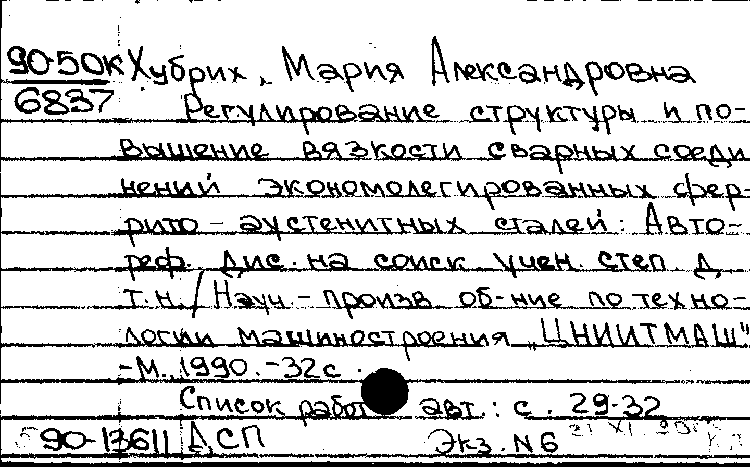 90-50к Хубрих, Мария Александровна
6837 Регулирование структуры и по-
вышение вязкости сварных соеди
нений экономолегированных фер-
рито-аустенитных сталей: Авто-
реф. дис. на соиск. учен. степ. д.
т.н. / Науч.-произв. об-ние по техно-
логии машиностроения "ЦНИИТМАШ"
-М., 1990. -32с.
Список работ авт.: с. 29-32
90-13611 ДСП Экз. N6